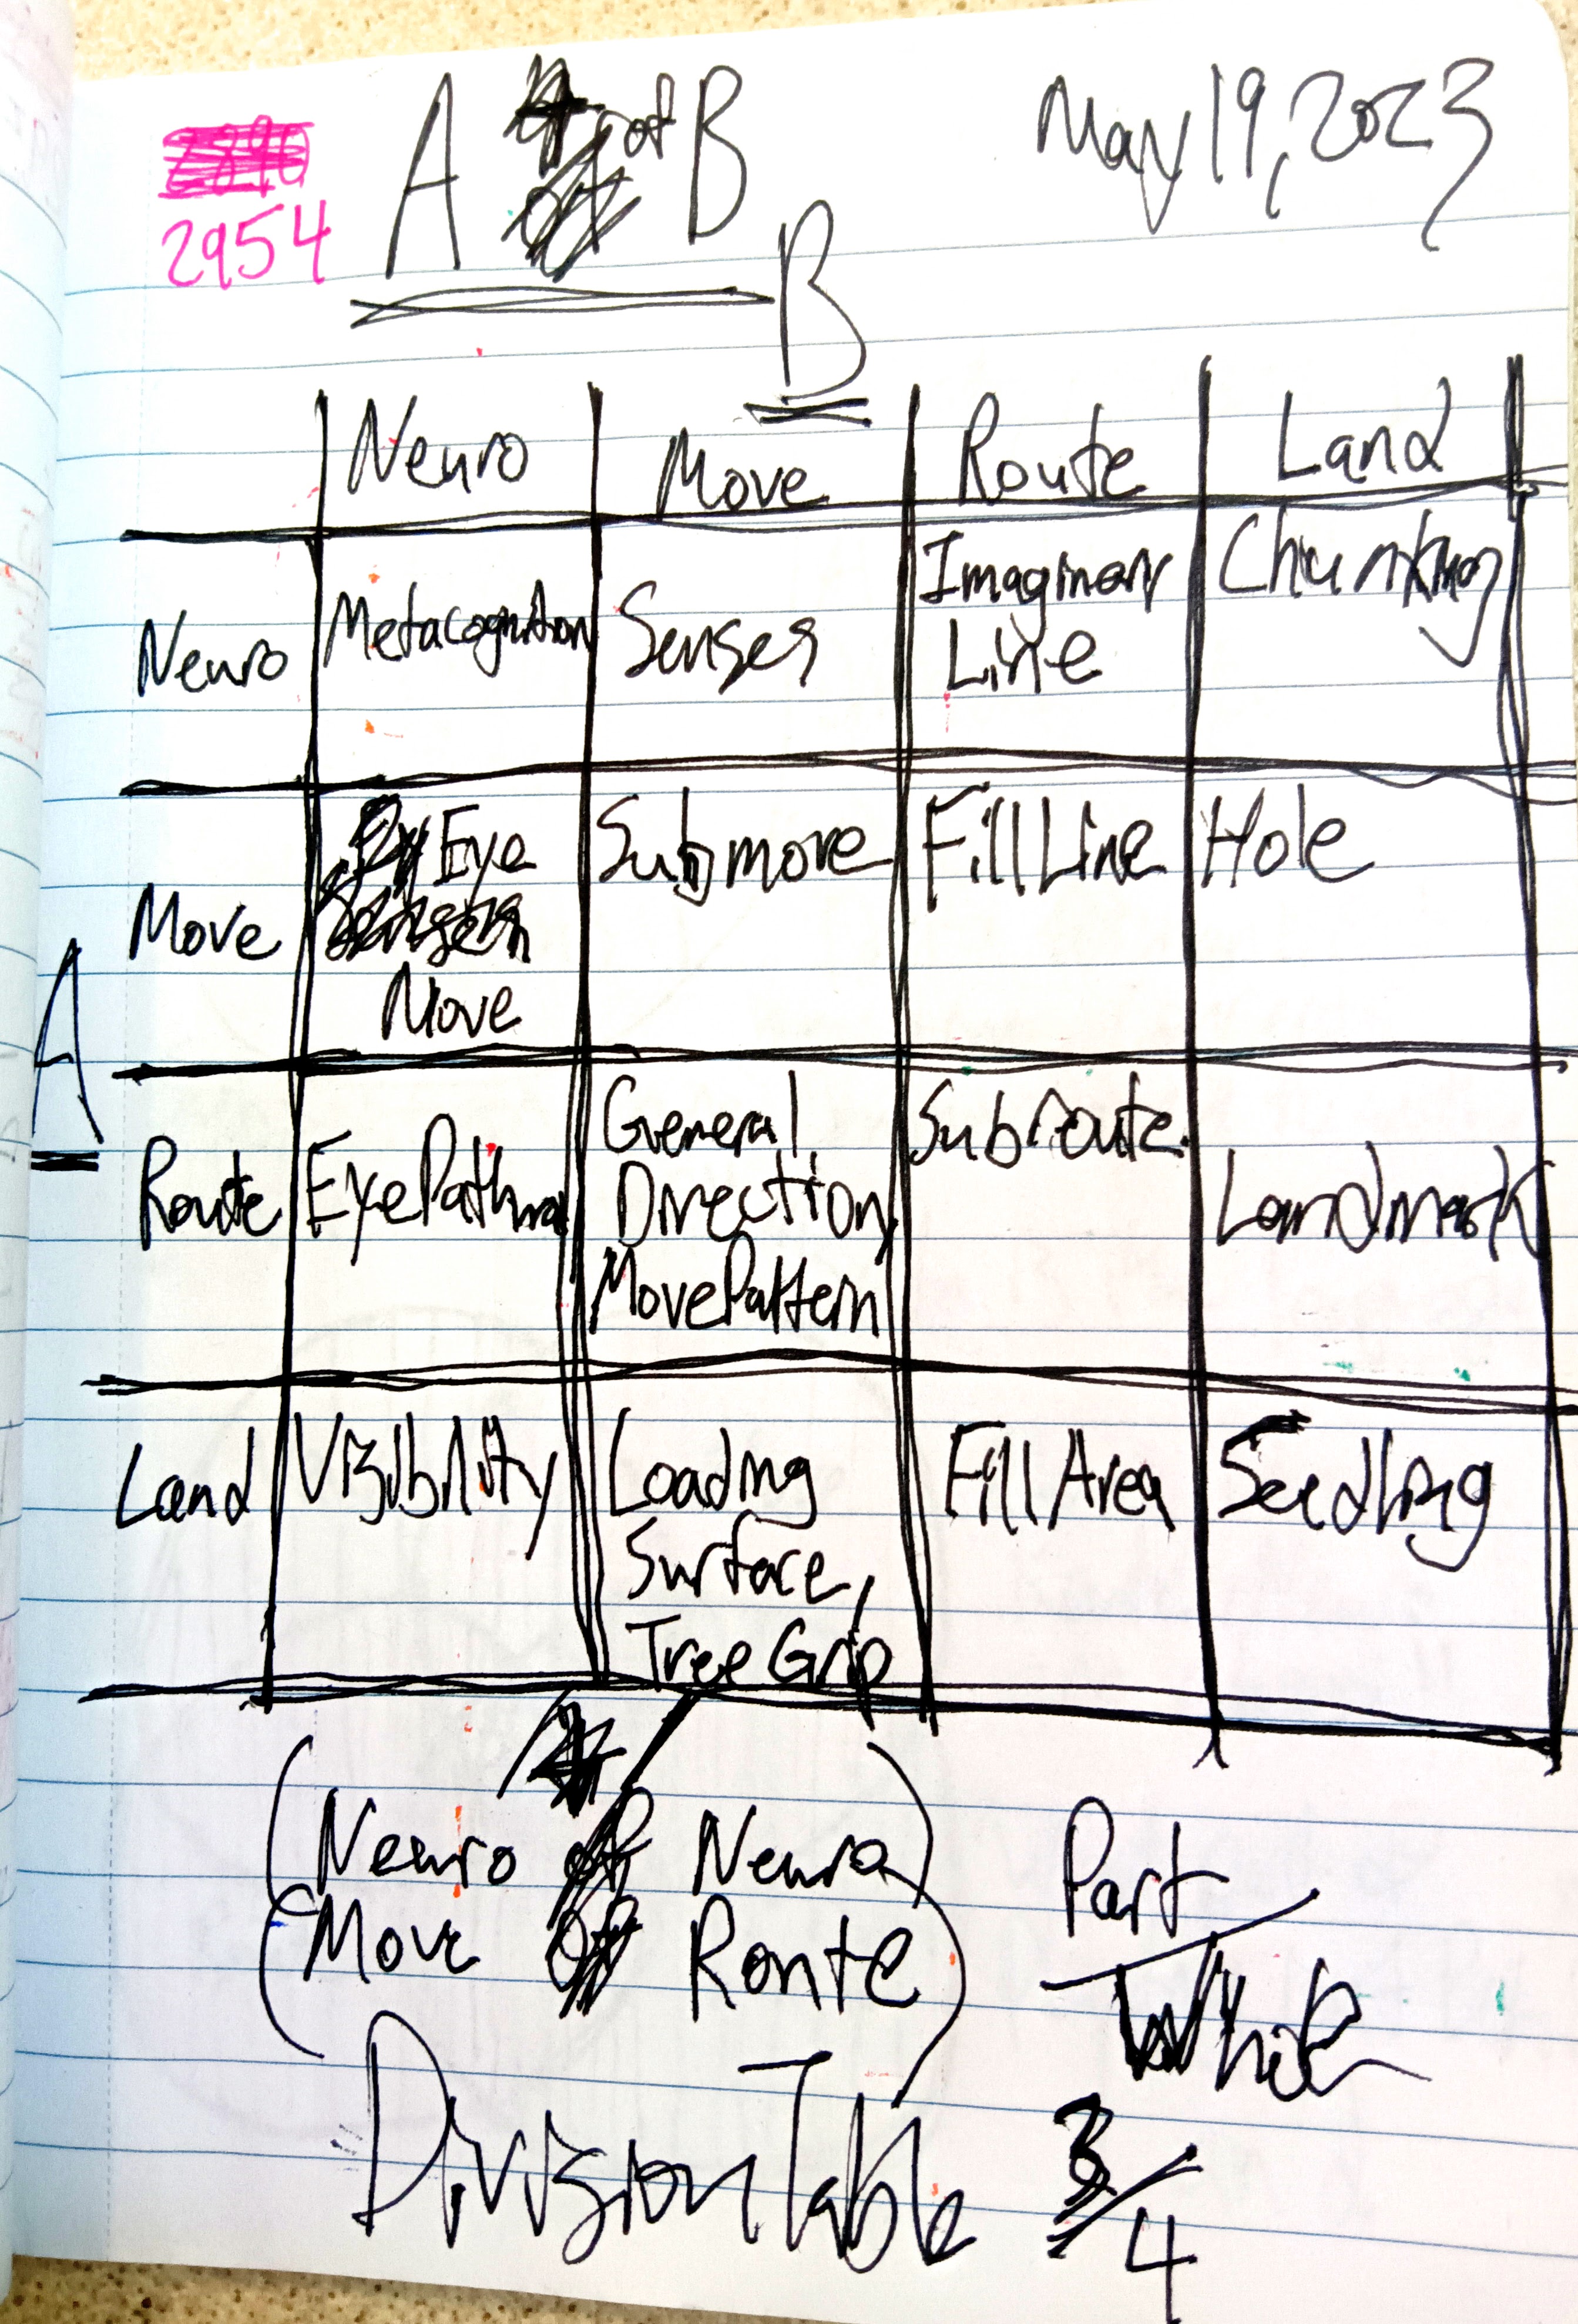 A of B
May 19, 2023
2954
B
Neuro Move Route Land
Neuro Metacognition Senses Imaginary Line Chunking
Move Eye Move Submove Fill Line Hole
A
Route Eye Pathway General Direction, Move Pattern Subroute Landmark
Land Visibility Loading Surface, Tree Grip Fill Area Seedling
(Neuro / Neuro)
(Move / Route)
Part
Whole
Division Table
3/4